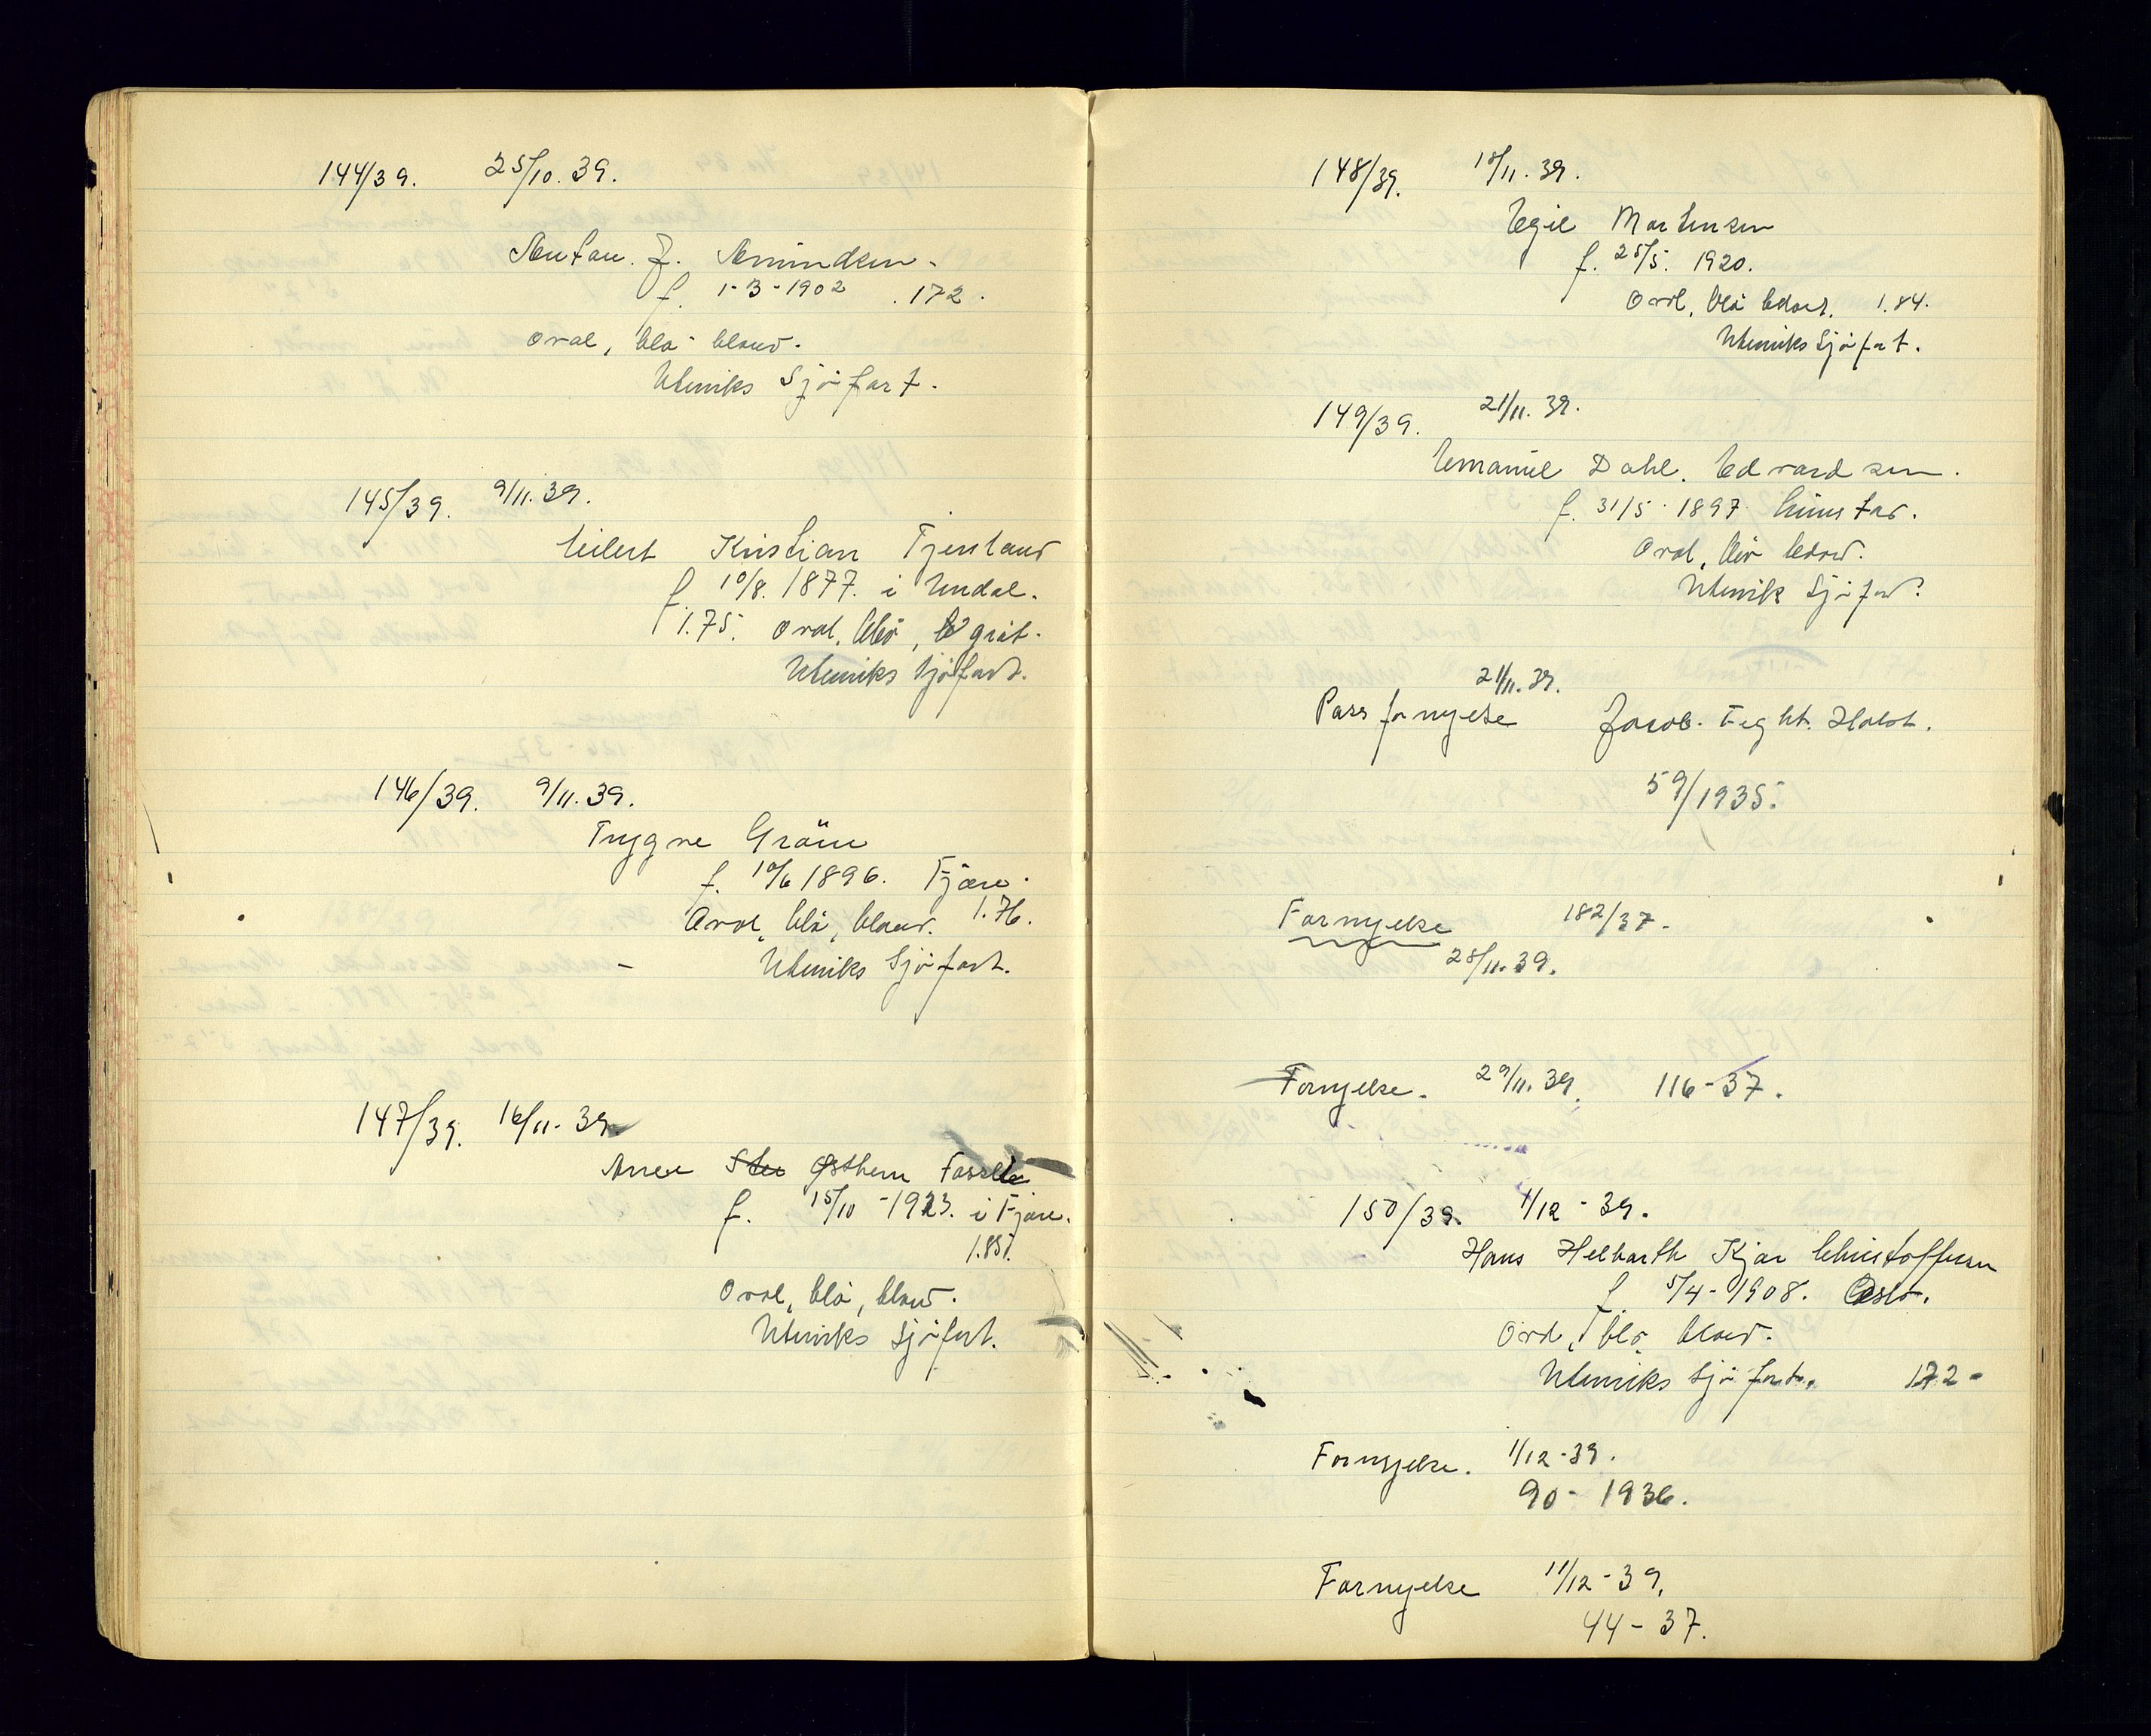 144/39. 25/10. 39.
Anton. J. Amundsen.
f. 1-3-1902 .172.
Oval, blå blond.
Utenriks Sjøfart.
145/39. 9/11. 39.
Eilert Kristian Tjenland
f. 10/8. 1877. i Undal.
1.75. Oval, blå, gråt.
Utenriks Sjøfart.
146/39. 9/11. 39.
Trygve Gröm
f. 10/6 1896. Fjære.
Oval, blå, blond. 1.76.
Utenriks Sjøfart.
147/39. 16/11- 39.
Arne Østhem Fossli
f. 15/10 -1923. i Fjære.
1.85.
Oval, blå, blond.
Utenriks Sjøfart.
148/39. 18/11. 39.
Egil Martinsen
f. 25/5. 1920.
Oval, blå blond. 1.84.
Utenriks Sjøfart.
149/39. 21/11. 39.
Emanuel Dahl. Edvardsen.
f. 31/5. 1897 Grimstad.
Oval, blå blond.
Utenrik Sjøfart.
21/11. 39.
Pass fornyelse Jacob. Feght. Holst.
59/1935.
Fornyelse 182/37.
28/11. 39.
Fornyelse. 29/11. 39. 116-37.
150/39. 1/12 - 39.
Hans Helbarth Kjær Christoffersen
f 5/4-1908. Oslo.
Oval, blå, blond.
Utenriks Sjøfart. 172-
Fornyelse. 1/12-39.
90- 1936.
Fornyelse 11/12-39.
44-37.